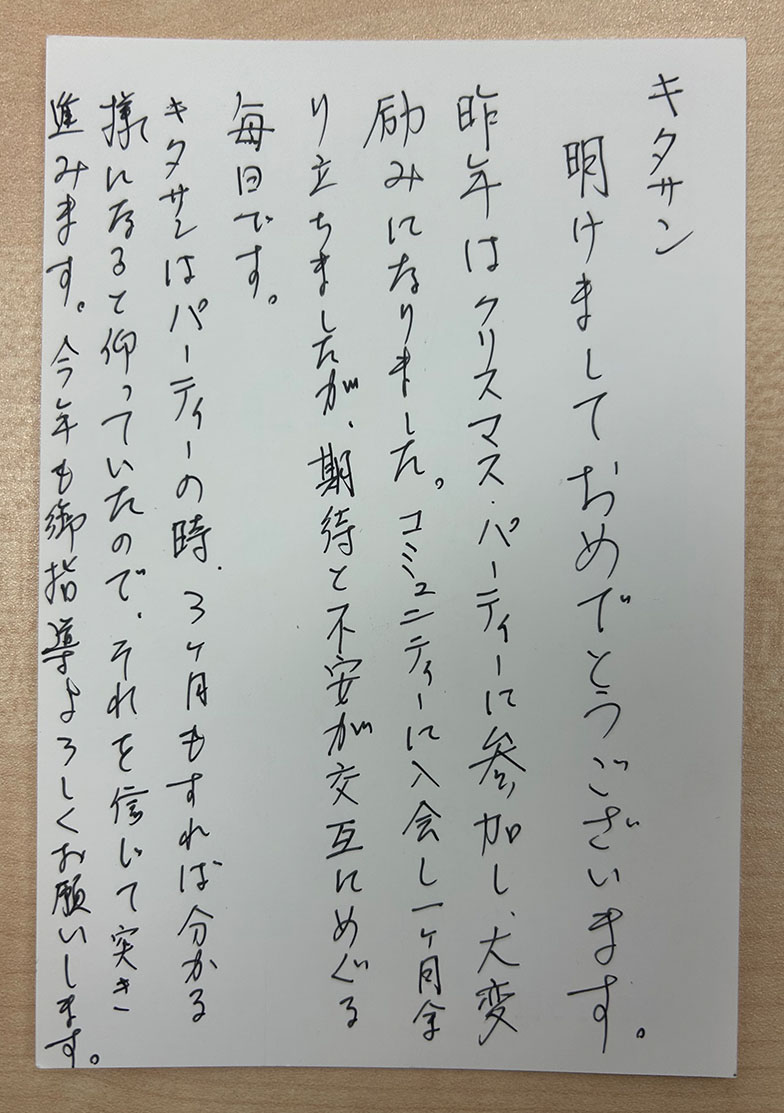 キタサン
明けましておめでとうございます。
昨年はクリスマス・パーティーに参加し、大変
励みになりました。コミュニティーに入会し一ヶ月余
り立ちましたが、期待と不安が交互にめぐる
毎日です。
キタサンはパーティーの時、3ヶ月もすれば分かる
様になると仰っていたので、それを信じて突き
進みます。今年も御指導よろしくお願いします。